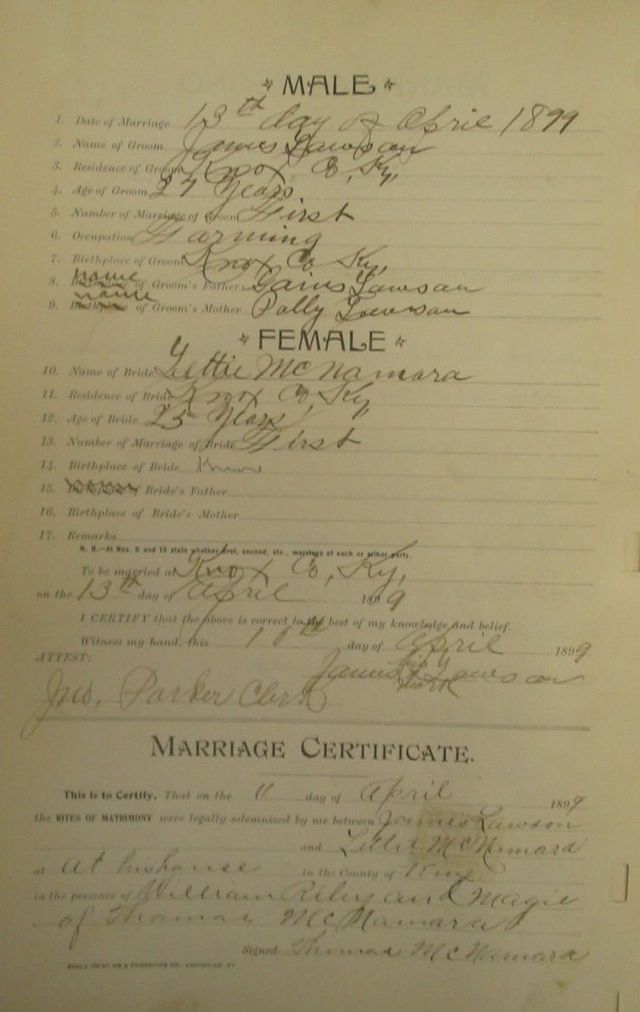 MALE
1. Date of Marriage 13th day of April 1899
2. Name of Groom James Lawson
3. Residence of Groom Knox Co, Ky,
4. Age of Groom 27 Years
5. Number of Marriage of Groom First
6. Occupation Farming
7. Birthplace of Groom Knox Co Ky,
8. name of Groom's Father Gains Lawson
9. name of Groom's Mother Polly Lawson
FEMALE
10. Name of Bride Lettie McNamara
11. Residence of Bride Knox Co, Ky
12. Age of Bride 25 Years
13. Number of Marriage of Bride First
14. Birthplace of Bride Knox
15. Bride's Father
16. Birthplace of Bride's Mother
17. Remarks
N. B.—At Nos. 5 and 13 state whether first, second, etc., marriage of each or either party.
To be married at Knox Co, Ky,
on the 13th day of April 1899
I CERTIFY that the above is correct to the best of my knowledge and belief.
Witness my hand, this day of April 1899
ATTEST: James Lawson
his X mark
Jno. Parker Clerk
MARRIAGE CERTIFICATE.
This is to Certify, That on the 11 day of April 1899
the RITES OF MATRIMONY were legally solemnized by me between James Lawson
and Lettie McNamara
at At his house in the County of Knox
in the presence of William Riley and Magie
of Thomas McNamara
Signed Thomas McNamara